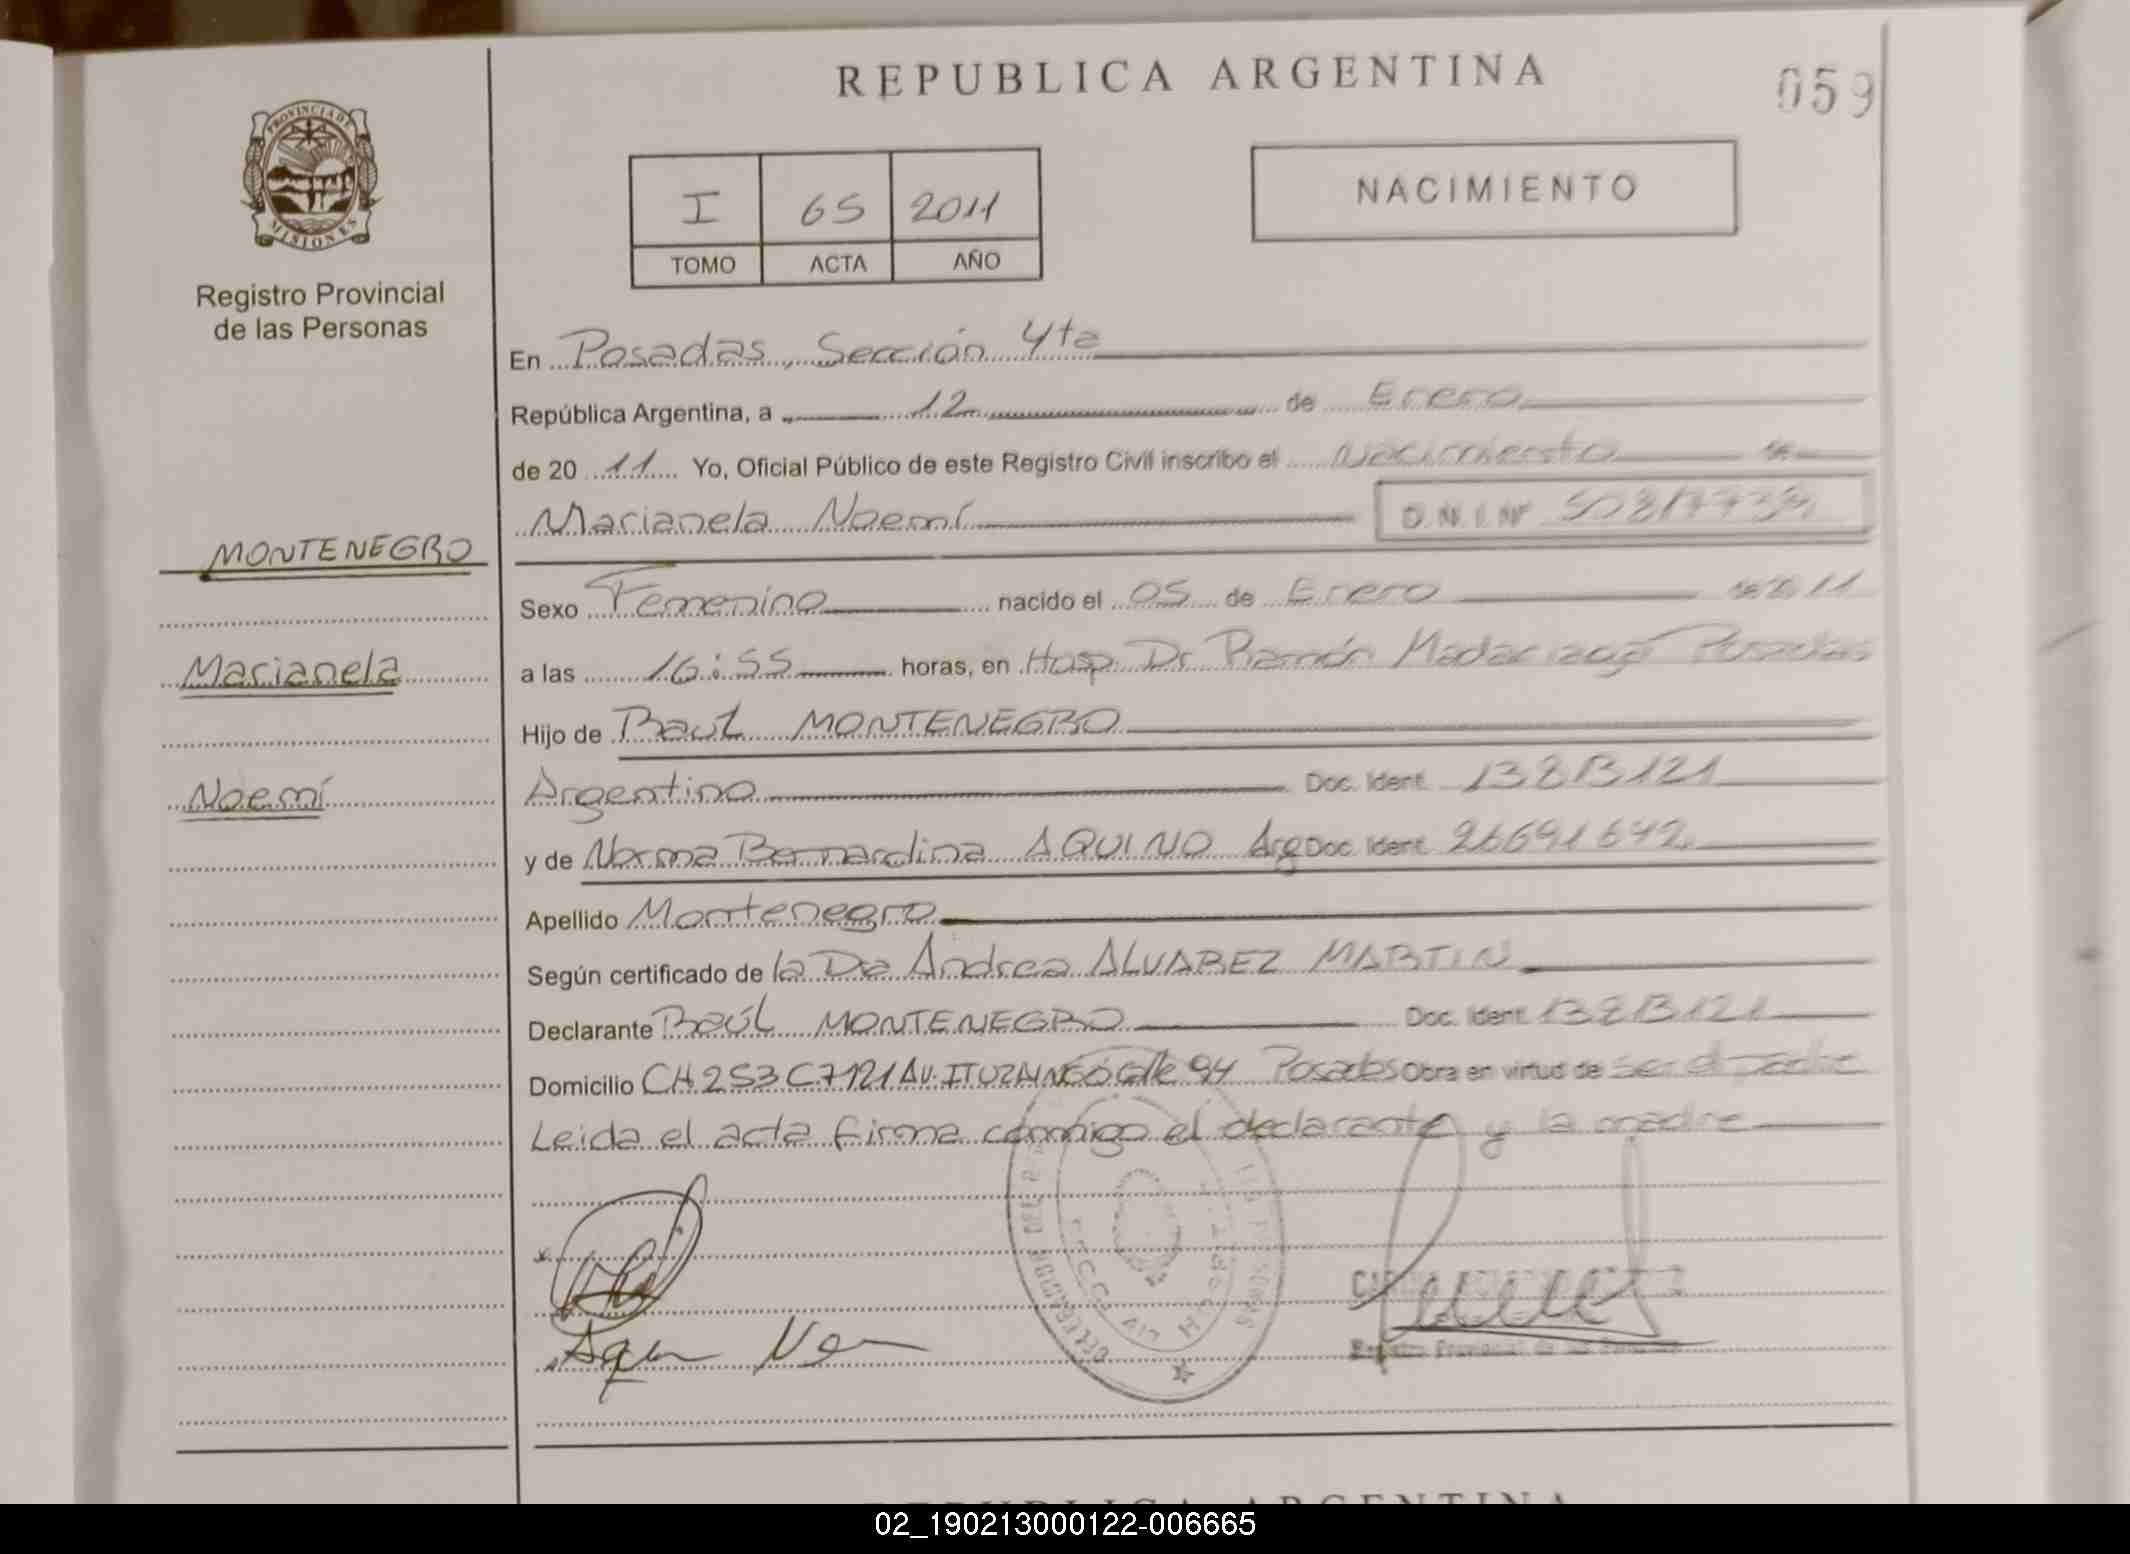 REPUBLICA ARGENTINA
059
PROVINCIA DE
MISIONES
Registro Provincial
de las Personas
I 65 2011
TOMO ACTA AÑO
NACIMIENTO
En Posadas, Sección 4ta
República Argentina, a 12 de Enero
de 2011 Yo, Oficial Público de este Registro Civil inscribo el Nacimiento de
Marianela Noemí D.N.I. Nº
MONTENEGRO
Marianela
Noemí
Sexo Femenino nacido el 05 de Enero de 2011
a las 16:55 horas, en Hosp. Dr Ramón Madariaga Posadas
Hijo de Raúl MONTENEGRO
Argentino Doc. Ident.
y de Norma Bernardina AQUINO Arg Doc. Ident. 26691642
Apellido Montenegro
Según certificado de la Dra Andrea ALVAREZ MARTIN
Declarante Raúl MONTENEGRO Doc. Ident.
Domicilio CH 253 C7121 AV. ITUZAINGÓ Calle 94 Posadas Obra en virtud de ser el padre
Leida el acta firma conmigo el declarante y la madre
Registro Provincial de las Personas
REPUBLICA ARGENTINA
02_190213000122-006665